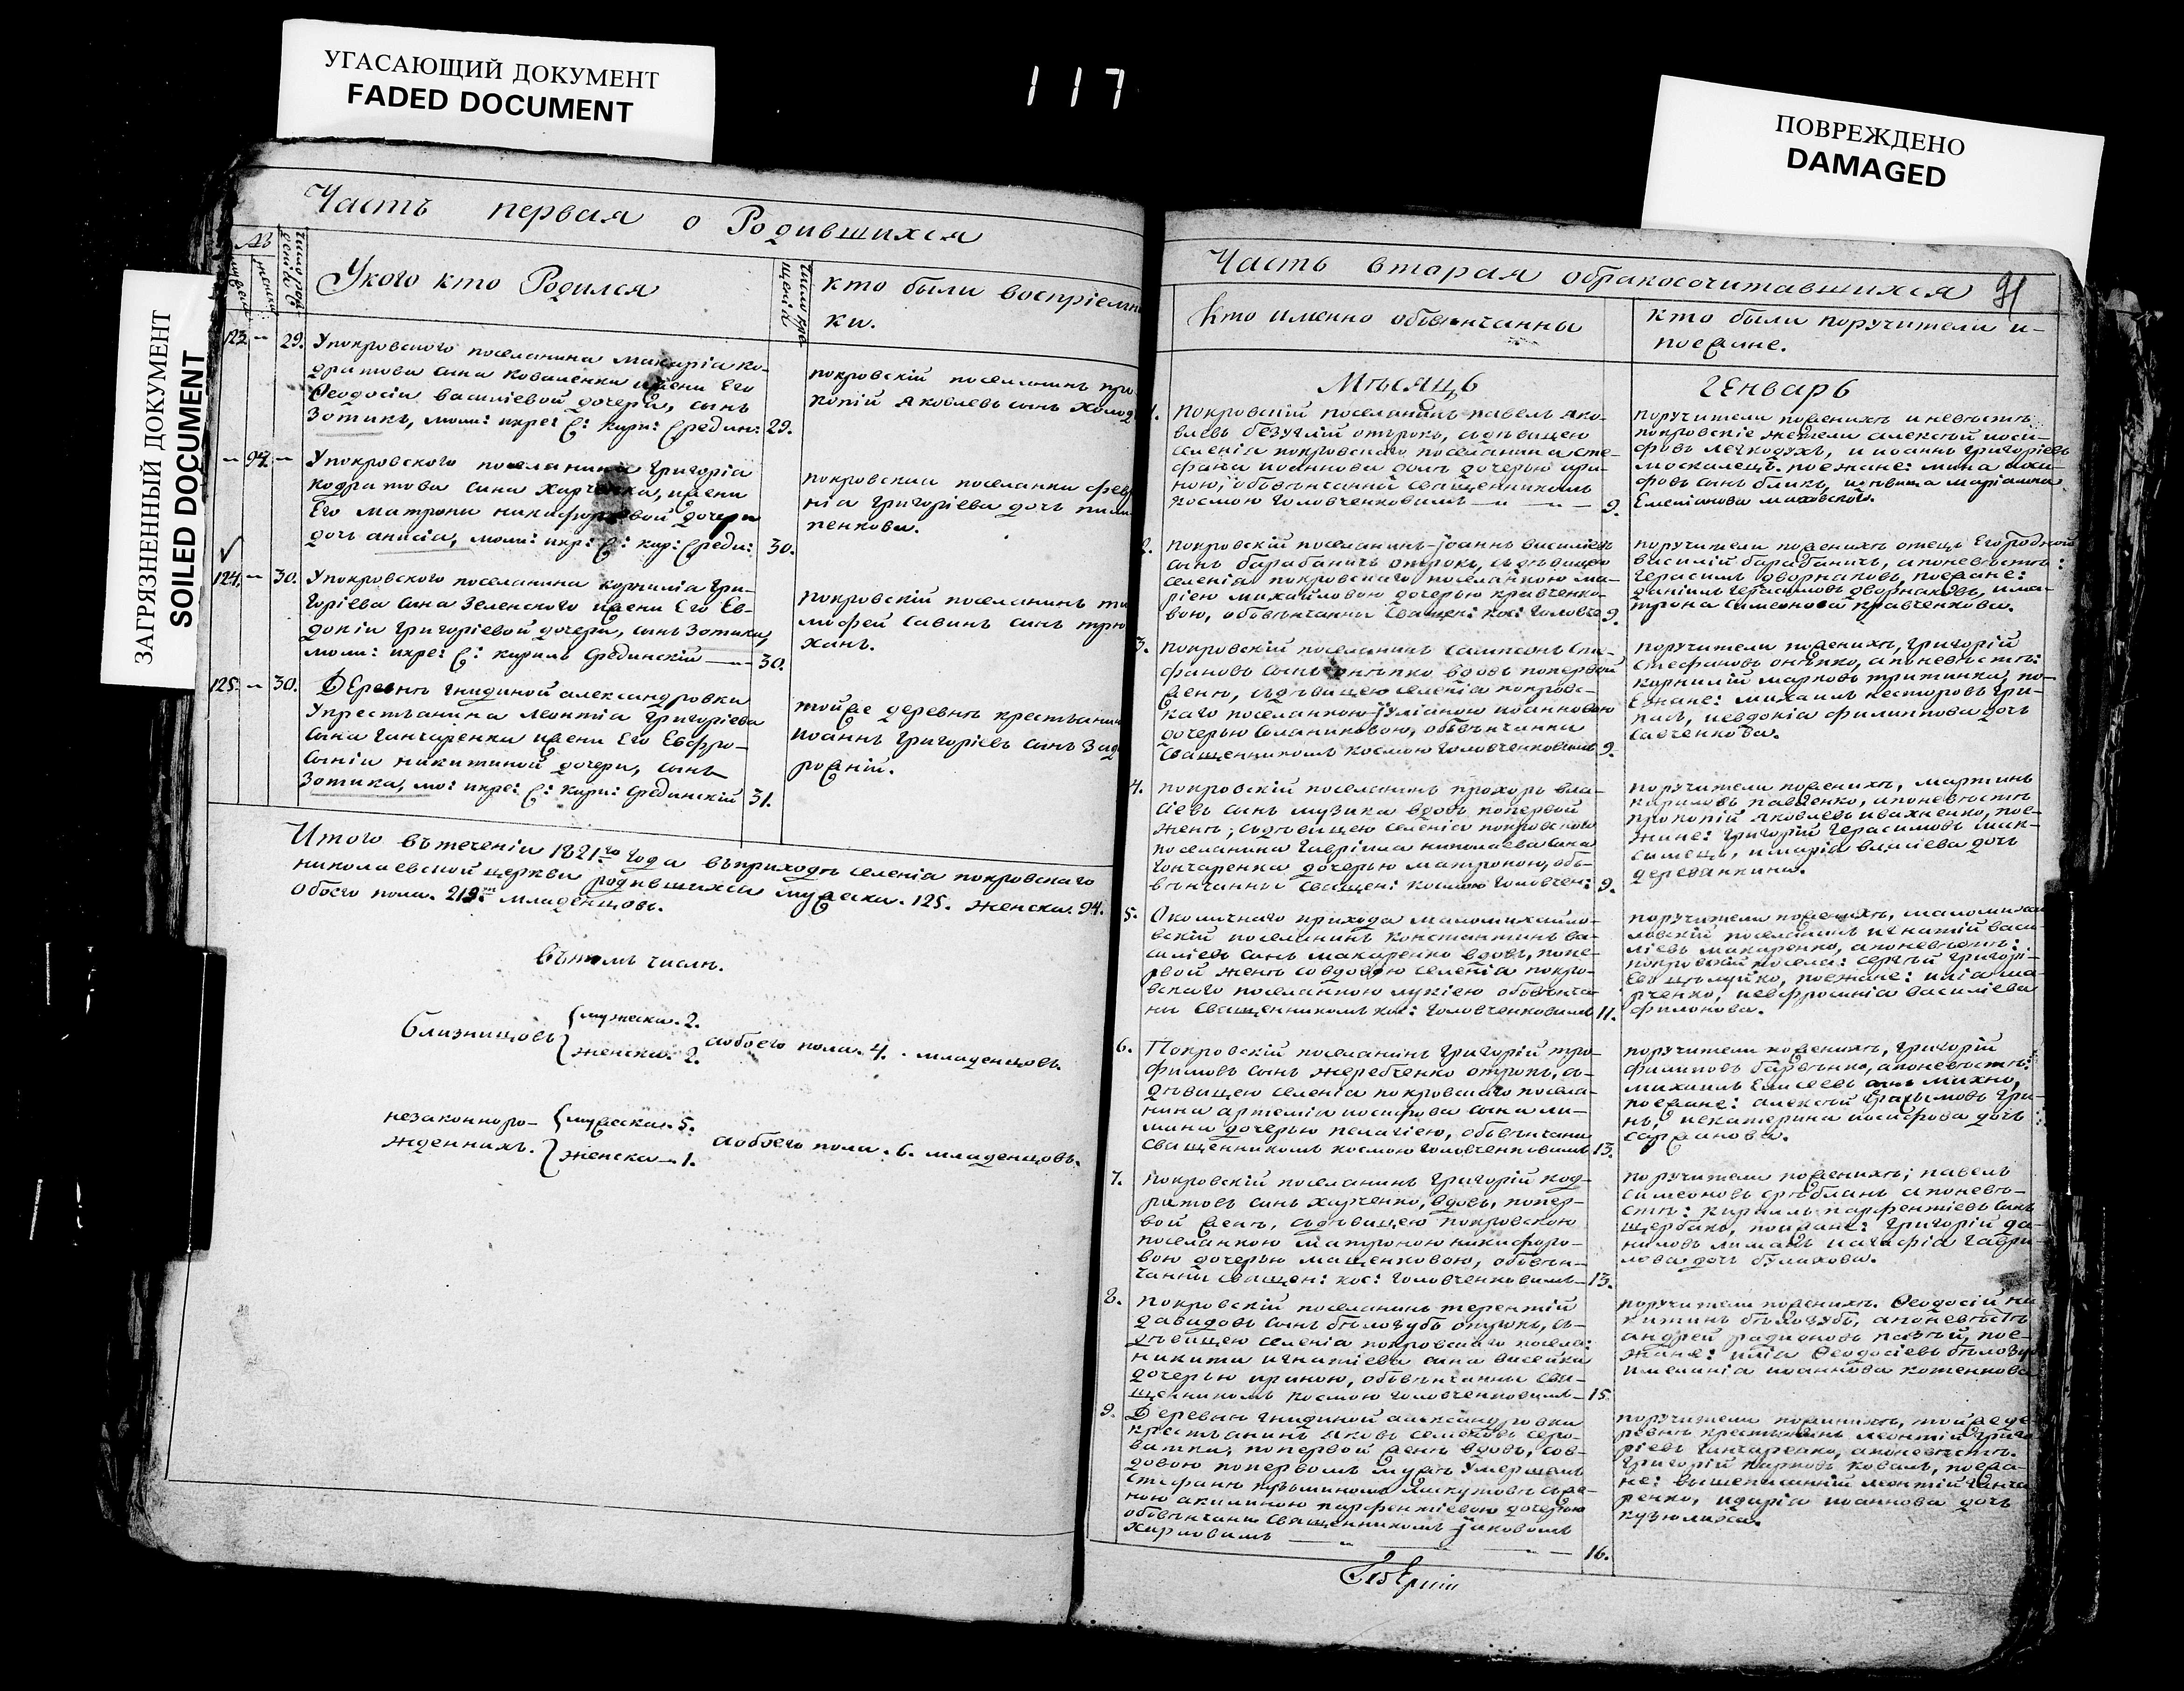 УГАСАЮЩИЙ ДОКУМЕНТ
FADED DOCUMENT
117
ПОВРЕЖДЕНО
DAMAGED
ЗАГРЯЗНЕННЫЙ ДОКУМЕНТ
SOILED DOCUMENT
Часть первая о Родившихся
Укого кто Родился
кто были воспріемни
ки.
123. 29. Упокровского поселанина макаріа ко-
дратова сына коваленка жени Его
Ѳеодосіи василіевой дочери, сынъ
Зотикъ, моли: икре: С: кири: Среди: 29.
покровскій поселанинъ про
копій яковлевъ сынъ холод
94. Упокровского поселанина григоріа
кодратова сина харченка, жени
Его матрони никифоровой дочери
дочь анисіа, моли: икр: С: кир: Среди: 30.
покровскаи поселанки фев
ніа григоріева дочь
пенкова.
124. 30. Упокровского поселанина корниліа гри-
горіева сына Зеленского жени Его Ев-
докіи григоріевой дочери, сынъ Зотикъ,
моли: икре: С: кирилъ Срединскій 30.
покровскій поселанинъ ти
мофей савинъ синъ трю
ханъ.
125. 30. ДЕревнѣ гнидиной александровки
Укрестьанина леонтіа григоріева
сына ганчаренка жени Его Евфро-
сыніи никитиной дочери, сынъ
Зотика, мо: икре: С: кири: Срединскій 31.
тойже деревнѣ крестьанин
иоаннъ григоріевъ сынъ Зад
рожній.
Итого втеченіи 1821го года вприходѣ селеніа покровскаго
николаевской церкви родившихса мужеска. 125. женска. 94.
Обоего пола. 219. младенцовъ.
Втомъ числѣ.
близнецовъ {мужеска. 2.
женска. 2. аобоего пола. 4. младенцовъ.
незаконноро- {мужеска. 5.
жденнихъ. {женска. 1. аобоего пола. 6. младенцовъ.
Часть вторая обракосочитавшихся
91
кто именно обвѣнчанны
кто были поручители и-
поежане.
Мѣсяцъ
Генварь
1. покровскій поселанинъ павелъ яко-
влевъ безуглій отрокъ, сдѣвицею
селеніа покровскаго поселанина сте-
фана иоаннова дочерью ири-
ною, обвѣнчанны священникомъ
космою головченковимъ 9.
поручители поженихѣ и невѣстѣ
покровскіе жители алексѣй иоси-
фовъ легкодухъ, и иоаннъ григоріевъ
москалецъ. поежане: мина иоси-
фовъ сынъ бликъ, идѣвица маріамна
Емеліанова маховского.
2. покровскій поселанинъ іоаннъ василіевъ
сынъ барабашъ отрокъ, сдѣвицею
селеніа покровскаго поселанкою ма-
ріею михайловою дочерью кравченко-
вою, обвѣнчанны свящек: кос: головче 9.
поручители поженихѣ отецъ Его родной
василій барабашъ, апоневѣстѣ:
герасимъ дворнаковъ, поежане:
даніилъ герасимовъ дворнаковъ, има-
трона симеонова кравченкова.
3. покровскій поселанинъ сампсонъ сте-
фановъ сынъ онѣпко вдовъ попервой
женѣ, сдѣвицею селеніа покровс-
каго поселанкою іуліаною иоанновою
дочерью саланиковою, обвѣнчанны
священникомъ космою головченковимъ 9.
поручители поженихѣ, григорій
стефановъ онѣпко, апоневѣстѣ:
корнилій марковъ тритинка, по-
ежане: михаилъ несторовъ гри-
ись, иевдокіа филиппова дочь
савченкова.
4. покровскій поселанинъ прохоръ вла-
сіевъ сынъ музика вдовъ попервой
женѣ, сдѣвицею селеніа покровского
поселанина гавріила николаева сына
гончаренка дочерью матроною, об-
вѣнчанны священ: космою головчен: 9.
поручители поженихѣ, мартинъ
кириловъ павленко, апоневѣстѣ
прокопій яковлевъ ивахненко, пое-
жане: григорій герасимовъ
имаріа власіева дочь
дереванкина.
5. Околичнаго прихода маломихайло-
вскій поселанинъ константинъ ва-
силіевъ сынъ макаренко вдовъ, попе-
рвой женѣ совдовою селеніа покро-
вскаго поселанкою лукіею обвѣнча-
ны священникомъ кос: головченковимъ 11.
поручители поженихѣ, маломихай
ловскій поселанинъ игнатій васи-
ліевъ макаренко, апоневѣстѣ:
покровскій посела: сергѣй григорі-
евъ цѣлуйко, поежане: иліа ма-
рченко, иевфросиніа василіева
филонова.
6. Покровскій поселанинъ григорій тро-
фимовъ сынъ жеребченко отрокъ, с-
дѣвицею селеніа покровскаго посела-
нина артеміа иосифова сына ли-
мана дочерью пелагіею, обвѣнчани
священникомъ космою головченковимъ 13.
поручители поженихѣ, григорій
филиповъ бабенко, апоневѣстѣ:
михаилъ Елисеевъ синъ михно,
поежане: алексѣй гри-
нь, иекатерина иосифова дочь
саржанова.
7. покровскій поселанинъ григорій код-
ратовъ сынъ харченко, вдовъ, попер-
вой женѣ, сдѣвицею покровскою
поселанкою матроною никифоро-
вою дочерью мащенковою, обвѣн-
чанни свящек: кос: головченковимъ 13.
поручители поженихѣ; павелъ
симеоновъ апоневѣ-
стѣ: кириллъ парфентіевъ сынъ
щербакъ, поежане: григорій да-
ниловъ лиманъ иагафіа гаври-
лова дочь булахова.
8. покровскій поселанинъ терентій
давидовъ сынъ бѣлозубъ отрокъ, съ
дѣвицею селеніа покровскаго посела:
никити игнатіева сина висейка
дочерью ириною, обвѣнчанны свя-
щенникомъ космою головченковимъ 15.
поручители поженихѣ. Ѳеодосій ни
китинъ бѣлозубъ, апоневѣстѣ
андрей радионовъ пое-
жане: иліа Ѳеодосіевъ бѣлозуб
имеланіа иоаннова котенкова
9. Деревни гнидиной александровки
крестьанинъ яковъ семеновъ серо-
ватка, попервой женѣ вдовъ, совдовою
попервомъ мужѣ умершемъ
стефанѣ кузьминомъ
акилиною парфентіевою дочерью
обвѣнчани священникомъ іаковомъ
харловимъ 16.
поручители поженихѣ, тойже де
ревнѣ крестьанинъ леонтій григо
ріевъ ганчаренко, апоневѣстѣ.
григорій карповъ коваль, поежа-
не: вышеписанній леонтій ганча
ренко, идаріа иоаннова дочь